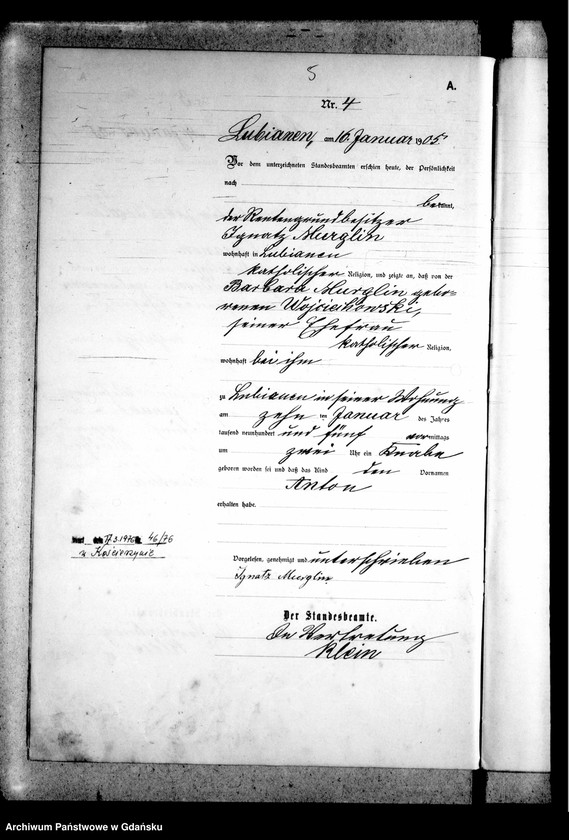 5
A.
Nr. 4
Lubianen, am 16. Januar 1905
Vor dem unterzeichneten Standesbeamten erschien heute, der Persönlichkeit
nach
bekannt,
der Rentengrundbesitzer
Ignatz Murglin
wohnhaft in Lubianen
katholischer Religion, und zeigte an, daß von der
Barbara Murglin gebo-
renen Wojcichowski,
seiner Ehefrau
katholischer Religion,
wohnhaft bei ihm
zu Lubianen in seiner Wohnung
am zehn ten Januar des Jahres
tausend neunhundert und fünf vormittags
um zwei Uhr ein Knabe
geboren worden sei und daß das Kind den Vornamen
Anton
erhalten habe.
17.3.1976 46/76
w Kościerzynie
Vorgelesen, genehmigt und unterschrieben
Ignatz Murglin
Der Standesbeamte.
In Vertretung
Klein
Archiwum Państwowe w Gdańsku